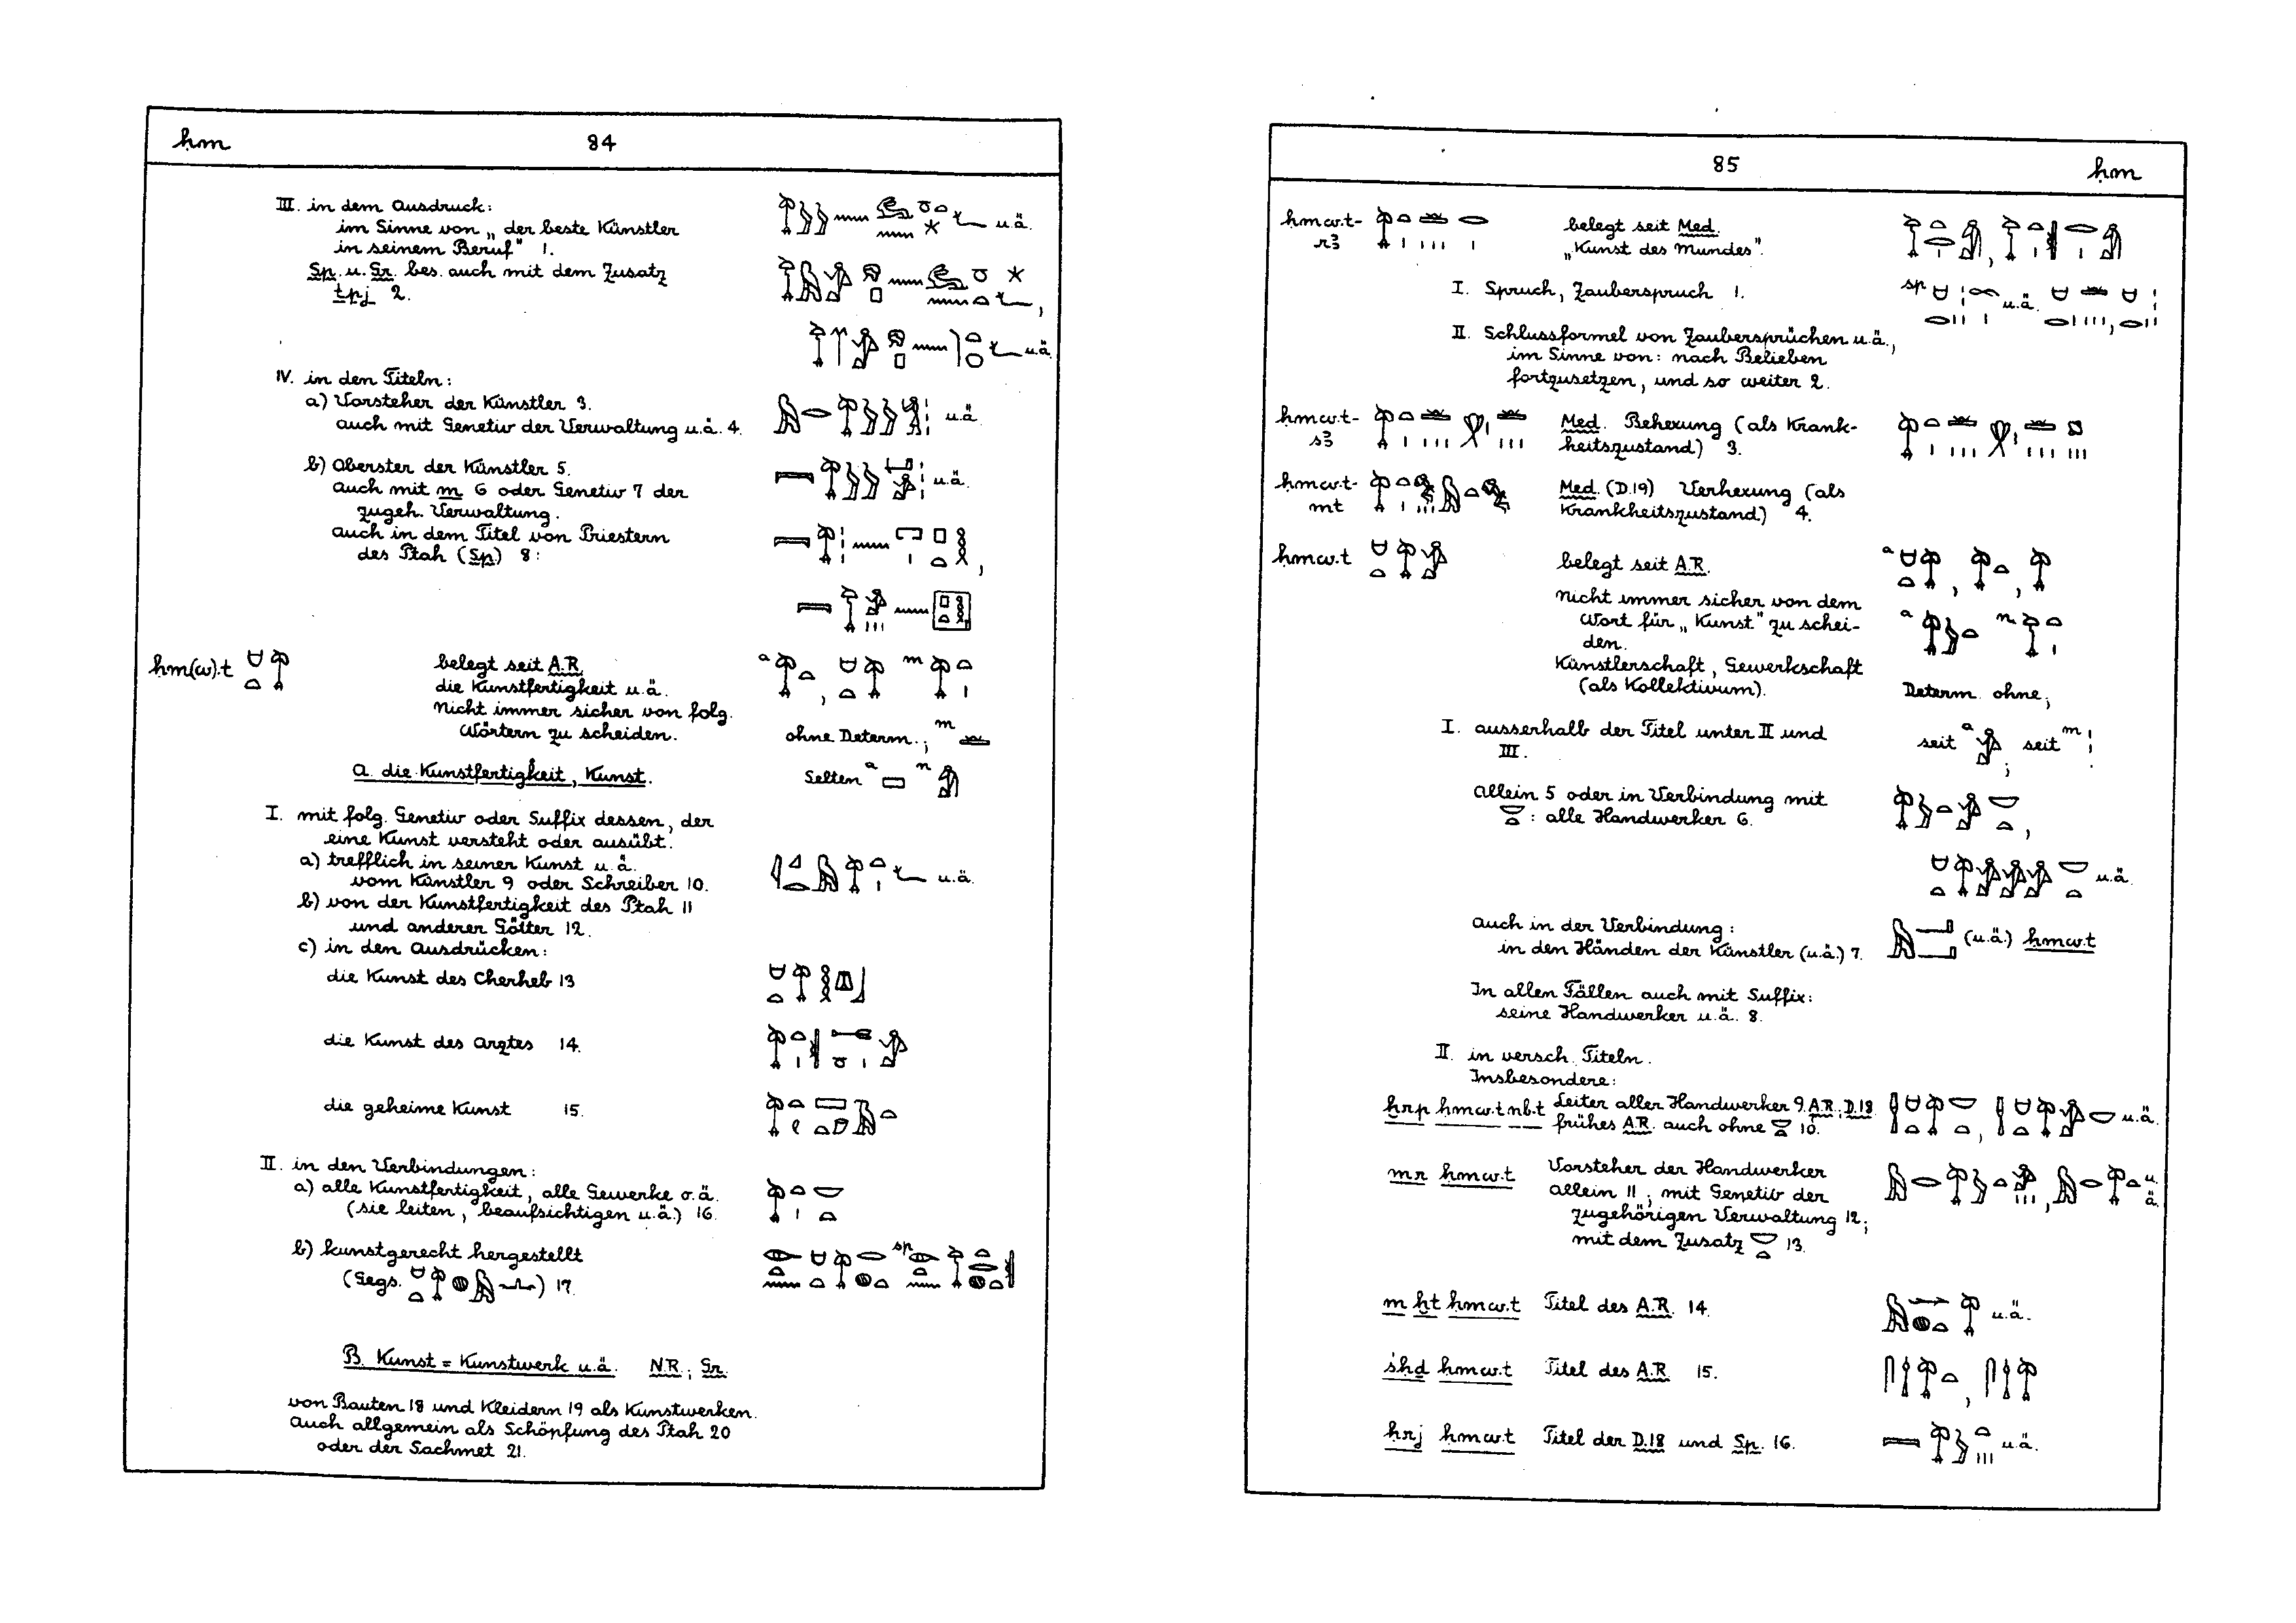 ḥm 84
III. in dem Ausdruck:
im Sinne von „der beste Künstler
in seinem Beruf" 1.
u.ä.
Sp. u. Gr. bes. auch mit dem Zusatz
tpj 2.
u.ä.
IV. in den Titeln:
a) Vorsteher der Künstler 3.
auch mit Genetiv der Verwaltung u.ä. 4.
u.ä.
b) Oberster der Künstler 5.
auch mit m 6 oder Genetiv 7 der
zugeh. Verwaltung.
u.ä.
auch in dem Titel von Priestern
des Ptah (Sp) 8:
ḥm(w).t
belegt seit A.R.
die Kunstfertigkeit u.ä.
nicht immer sicher von folg.
Wörtern zu scheiden.
a m
ohne Determ.; m
Selten a n
A. die Kunstfertigkeit, Kunst.
I. mit folg. Genetiv oder Suffix dessen, der
eine Kunst versteht oder ausübt.
a) trefflich in seiner Kunst u.ä.
vom Künstler 9 oder Schreiber 10.
u.ä.
b) von der Kunstfertigkeit des Ptah 11
und anderer Götter 12.
c) in den Ausdrücken:
die Kunst des Cherheb 13
die Kunst des Arztes 14.
die geheime Kunst 15.
II. in den Verbindungen:
a) alle Kunstfertigkeit, alle Gewerke o.ä.
(sie leiten, beaufsichtigen u.ä.) 16.
b) kunstgerecht hergestellt
(Gegs. ) 17.
sp
B. Kunst = Kunstwerk u.ä. N.R.; Gr.
von Bauten 18 und Kleidern 19 als Kunstwerken.
Auch allgemein als Schöpfung des Ptah 20
oder der Sachmet 21.
85 ḥm
ḥmw.t-
rꜣ
belegt seit Med.
„Kunst des Mundes".
I. Spruch, Zauberspruch 1.
sp u.ä.
II. Schlussformel von Zaubersprüchen u.ä.,
im Sinne von: nach Belieben
fortzusetzen, und so weiter 2.
ḥmw.t-
sꜣ
Med. Behexung (als Krank-
heitszustand) 3.
ḥmw.t-
mt
Med. (D.19) Verhexung (als
Krankheitszustand) 4.
ḥmw.t
belegt seit A.R.
a
nicht immer sicher von dem
Wort für „Kunst" zu schei-
den.
a n
Künstlerschaft, Gewerkschaft
(als Kollektivum).
Determ. ohne;
I. ausserhalb der Titel unter II und
III.
seit a ; seit m
allein 5 oder in Verbindung mit
: alle Handwerker 6.
u.ä.
auch in der Verbindung:
in den Händen der Künstler (u.ä.) 7.
(u.ä.) ḥmw.t
In allen Fällen auch mit Suffix:
seine Handwerker u.ä. 8.
II. in versch. Titeln.
Insbesondere:
ḫrp ḥmw.t nb.t Leiter aller Handwerker 9 A.R.; D.18
frühes A.R. auch ohne 10.
u.ä.
mr ḥmw.t Vorsteher der Handwerker
allein 11; mit Genetiv der
zugehörigen Verwaltung 12;
mit dem Zusatz 13.
u.
ä.
m ḫt ḥmw.t Titel des A.R. 14.
u.ä.
śḥḏ ḥmw.t Titel des A.R. 15.
ḥrj ḥmw.t Titel der D.18 und Sp. 16.
u.ä.